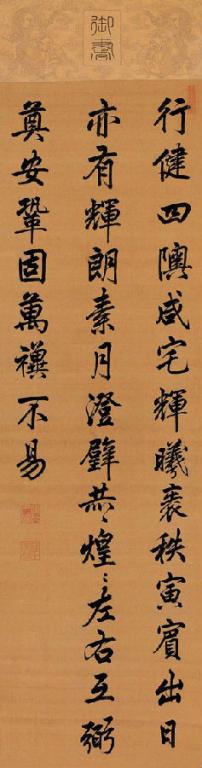 御書
行健四隩咸宅輝曦秩寅賓出日
亦有輝朗素月澄璧煌〻左右互弼
奠安鞏固萬禩不易